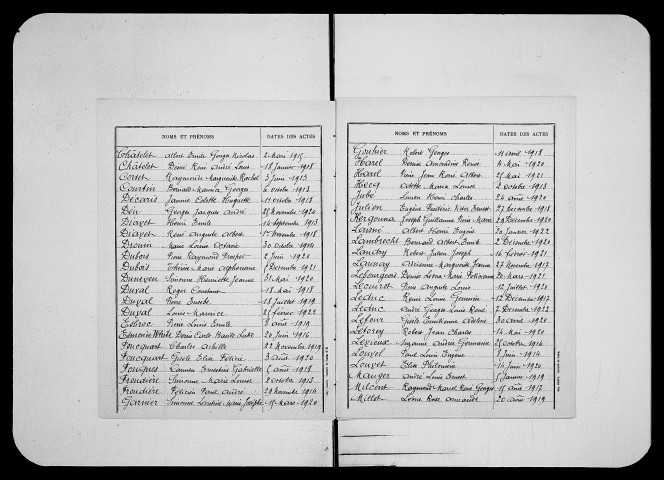 NOMS ET PRÉNOMS DATES DES ACTES
Châtelet Albert Emile Georges Nicolas 2 Mars 1915
Châtelet René André Louis 18 Janvier 1918
Corset Raymonde Marguerite Rachel 3 Juin 1913
Courtin Bernard Maurice Georges 6 octobre 1913
Décaris Jeanne Colette Huguette 11 octobre 1918
Déu Georges Jacques André 28 Novembre 1920
Diavet Henri Emile 14 Septembre 1913
Diavet René Auguste Albert 17 Novembre 1918
Drouin Marie Louise 30 octobre 1914
Dubois Pierre Raymond Prosper 2 Juin 1920
Dubois Thérèse Marie Alphonsine Décembre 1921
Duneven Simonne Henriette Jeanne 31 Mai 1920
Duval Roger Constant 18 Mai 1918
Duval Pierre Eusèbe 18 Juillet 1919
Duval Louis Maurice 21 février 1922
Esbroc Pierre Louis Emile 8 août 1919
Esmonin White Denis 20 Juin 1916
Foucquart Charles Achille 22 Novembre 1919
Foucquart Gisèle Elise Hélène 3 août 1920
Fouques Carmen Ernestine Gabrielle août 1918
Froudière Simonne Marie Louise 2 octobre 1913
Froudière Félicien Paul André 29 Novembre 1914
Garnier Simonne Léontine Marie Josèphe 15 Mars 1920
NOMS ET PRÉNOMS DATES DES ACTES
Gouhier Robert Georges 11 avril 1918
Harel Denise Amandine Renée 4 Mai 1920
Harel Pierre Jean René Albert 25 Mai 1921
Hecq Odette Marie Louise 2 octobre 1913
Jubé Lucien Henri Charles 24 août 1920
Julien Eugène Frédéric Ernest 27 Décembre 1918
Kergonna Joseph Guillaume Pierre Marie 29 Décembre 1920
Lainé Albert Henri Eugène 30 Janvier 1922
Lambrecht Bernard Albert Emile 2 Décembre 1920
Landry Robert Julien Joseph 16 février 1921
Launay Adrienne Marguerite Jeanne 27 Décembre 1917
Lebourgeois Denise Léone Marie Félicienne 20 Mars 1921
Lecuirot Pierre Auguste Louis 12 Juillet 1920
Leduc Remi Louis Germain 12 Décembre 1917
Leduc André Georges Louis René 7 Décembre 1922
Lefour Gisèle 30 avril 1920
Leforey Robert Jean Charles 14 Mai 1920
Levieux Suzanne Andrée Germaine 25 octobre 1916
Louvel Paul Louis Eugène 8 Juin 1914
Louvet Elise Philomène 14 Juin 1920
Mauger André Louis Ernest Janvier 1919
Milcent Raymond Marcel René Georges 15 août 1917
Millet Léone Rose Armande 20 août 1919